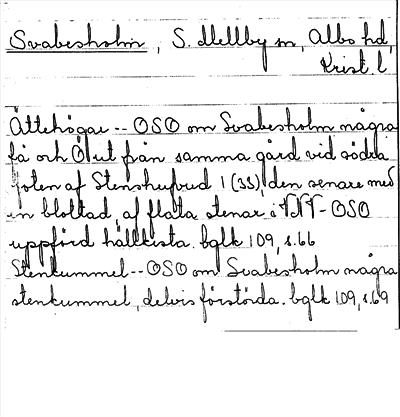 Svabesholm, S. Mellby sn, Albo hd,
Krist. l
Ättehögar -- OSO om Svabesholm några
få och Ö ut från samma gård vid södra
foten af Stenshufvud 1 (33), den senare med
en blottad, af flata stenar i VNV-OSO
uppförd hällkista. bglk 109, s. 66
Stenkummel -- OSO om Svabesholm några
stenkummel, delvis förstörda. bglk 109, s. 69